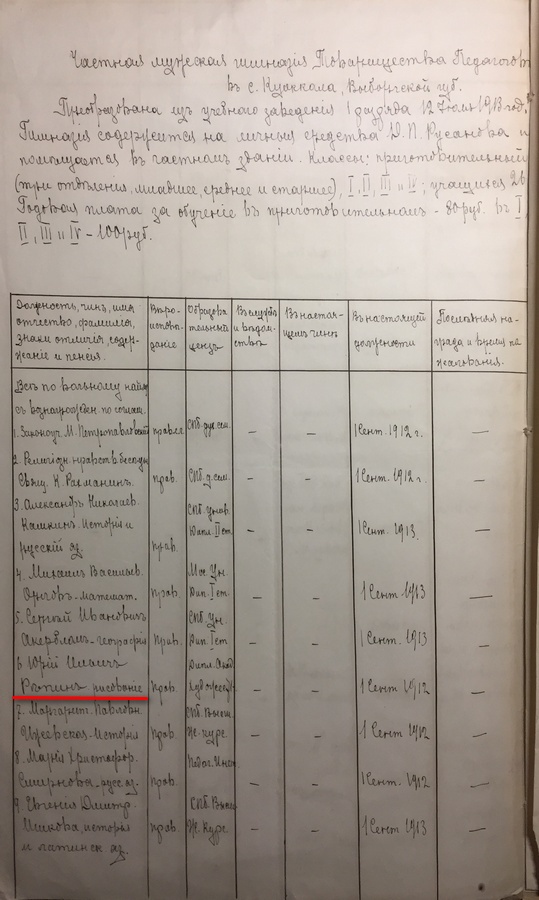 Частная мужская гимназія Товарищества Педагогов
въ с. Куоккала Выборгской губ.
Преобразована изъ учебнаго заведенія 1 разряда 12 Іюня 1913 год.
Гимназія содержится на личныя средства Д. П. Русанова и
помѣщается въ частномъ зданіи. Классы: приготовительный
(три отдѣленія: младшее, среднее и старшее), I, II, III и IV; учащихся 26
Годовая плата за обученіе въ приготовительномъ - 80 руб. въ I,
II, III и IV - 100 руб.
Должность, чинъ, имя Вѣро- Образова- Въ службѣ Въ настоя- Въ настоящей Послѣдняя на-
отчество, фамилія, исповѣ- тельный и вѣдом- щемъ чинѣ должности града и время по
знаки отличія, содер- даніе цензъ ствѣ жалованія.
жаніе и пенсія.
Всѣ по вольному найму
съ вознагражден. по соглаш.
1. Законоуч. М. Петропавловскій правосл. СПб. дух. сем. — — 1 Сент. 1912 г. —
2. Религіозн. нравств. бесѣды
Свящ. Н. Рахманинъ. прав. СПб. д. сем. — — 1 Сент. 1912 г. —
3. Александръ Николаев. СПб. Унив.
Кашкинъ. Исторія и Дипл. II ст. — — 1 Сент. 1913. —
русскій яз. прав.
4. Михаилъ Васильев. Мос. Ун.
математ. прав. Дип. I ст. — — 1 Сент. 1913 —
5. Сергѣй Ивановичъ СПб. Ун.
Акерблом - географія прав. Дип. I ст. — — 1 Сент. 1913 —
6. Юрій Ильичъ Дипл. Акад.
Рѣпинъ рисованіе прав. Художеств. — — 1 Сент. 1912 —
7. Маргарит. Павловн. СПб. Высш.
Исторія прав. Ж. курс. — — 1 Сент. 1912 —
8. Марія Христофор. Педаг. Инст.
Смирнова - русс. яз. прав. — — 1 Сент. 1912 —
9. Евгенія Дмитр. СПб. Высш.
исторія прав. Ж. Курс. — — 1 Сент. 1913 —
и латинск яз.